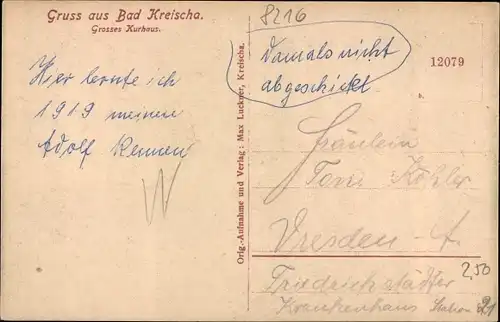 Gruss aus Bad Kreischa.
Grosses Kurhaus.
Hier lernte ich
1919 meinen
Adolf kennen
W
Orig.-Aufnahme und Verlag: Max Luckner, Kreischa.
8216
Damals nicht
abgeschickt
12079
Fräulein
Toni Köhler
Dresden - A.
2,50
Friedrichstädter
Krankenhaus Station